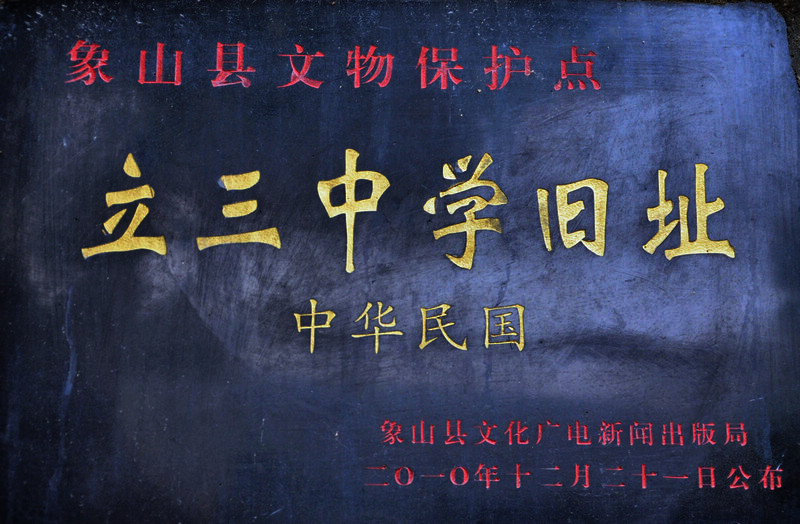 象山县文物保护点
立三中学旧址
中华民国
象山县文化广电新闻出版局
二〇一〇年十二月二十一日公布